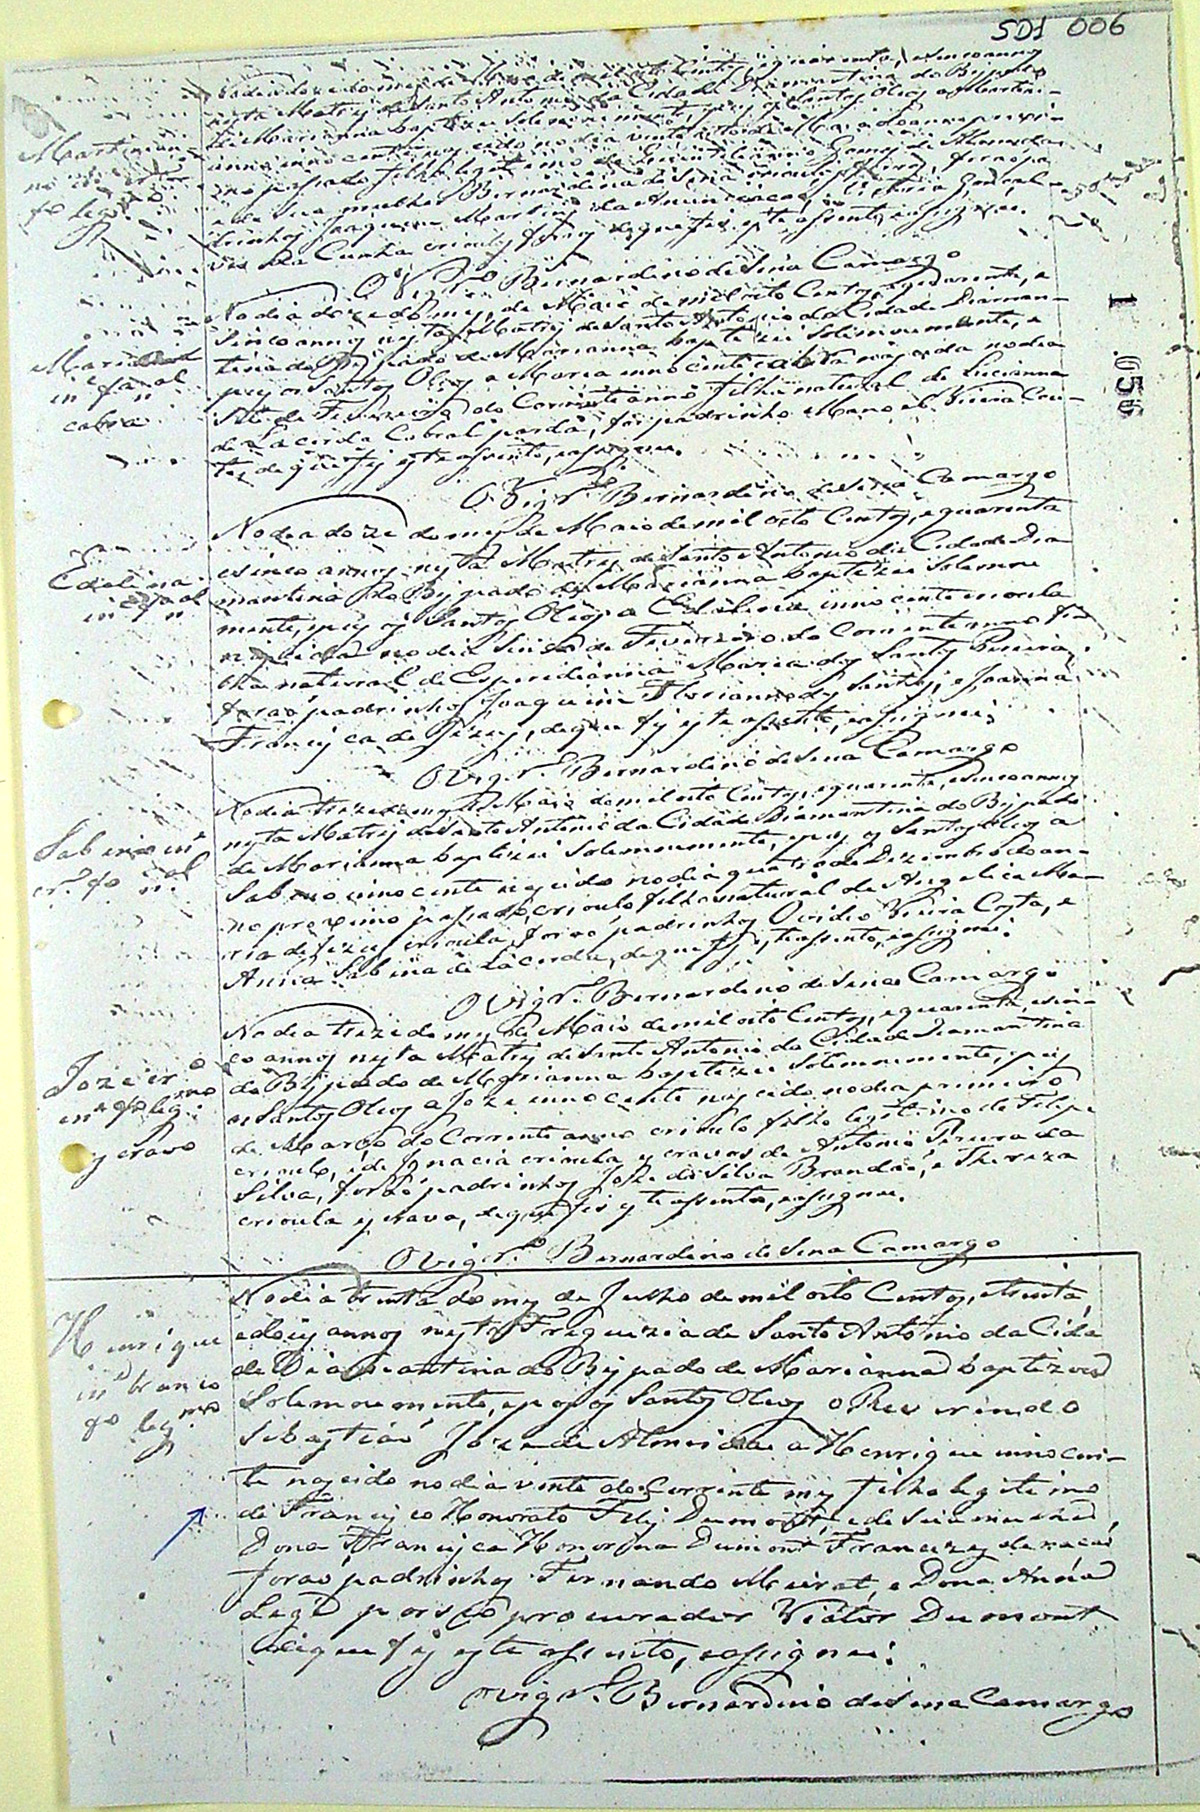 SD1 006
nesta Matriz de Santo Antonio da Cidade Diamantina do Bispado
de Marianna baptizei solemnemente, e puz os Santos Oleos a Martini-
anno innocente nascido no dia vinte
mo passado filho legitimo de Gomes de Almeida
e de sua mulher Bernardina de Sena crioulos forros, forão pa-
drinhos Joaquim Martins da Annunciacão, e
ves da Cunha crioulos forros de que fiz este assento, e assignei.
O Vigr.º Bernardino de Sena Camargo
Martinian-
no
fº leg.mo
No dia doze do mes de Maio de mil oito Centos, e quarenta, e
sinco annos nesta Matriz de Santo Antonio da Cidade Diaman-
tina do Bispado de Marianna baptizei solemnemente, e
puz os Santos Oleos a Maria innocente cabra nascida no dia
sete de Fevereiro do Corrente anno filha natural de Lucianna
de Lacerda Cabral parda, foi padrinho Manoel Vieira Cou-
to, de que fiz este assento, e assignei.
O Vigr.º Bernardino de Sena Camargo
Maria
in.e fª n.al
cabra
No dia doze do mes de Maio de mil oito Centos, e quarenta
e sinco annos nesta Matriz de Santo Antonio da Cidade Dia
mantina do Bispado de Marianna baptizei solemne
mente, e puz os Santos Oleos a Edelina innocente crioula
nascida no dia sinco de Fevereiro do Corrente anno fi
lha natural de Esperidianna Maria dos Santos Pereira,
forão padrinhos Joaquim Florianno dos Santos, e Joanna
Francisca de Jezus, de que fiz este assento, e assignei.
O Vigr.º Bernardino de Sena Camargo
Edelina
No dia treze do mes de Maio de mil oito Centos, e quarenta, e sinco annos
nesta Matriz de Santo Antonio da Cidade Diamantina do Bispado
de Marianna baptizei solemnemente, e puz os Santos Oleos a
Sabino innocente nascido no dia quatro de Dezembro do an-
no proximo passado, crioulo filho natural de Angelica Ma-
ria de Jezus crioula, forão padrinhos Ovidio Vieira Costa, e
Anna Sabina de Lacerda, de que fiz este assento, e assignei.
O Vigr.º Bernardino de Sena Camargo
Sabino in.e
cr.º fº n.al
No dia treze do mes de Maio de mil oito Centos, e quarenta, e sin-
co annos nesta Matriz de Santo Antonio da Cidade Diamantina
do Bispado de Marianna baptizei solemnemente, e puz
os Santos Oleos a Joze innocente nascido no dia primeiro
de Março do Corrente anno crioulo filho legitimo de Felipe
crioulo, e de Ignacia crioula escravos de Antonio Pereira da
Silva, forão padrinhos José da Silva Brandão, e Thereza
crioula escrava, de que fis este assento, e assignei.
O Vigr.º Bernardino de Sena Camargo
Joze cr.º
in.e fº leg.mo
escravo
No dia trinta do mes de Julho de mil oito Centos, e trinta,
e dois annos nesta Freguezia de Santo Antonio da Cida
de Diamantina do Bispado de Marianna baptizou
Solemnemente, e poz os Santos Oleos o Reverendo
Sebastião Joze de Almeida a Henrique innocen-
te nascido no dia vinte do Corrente mes filho legitimo
de Francisco Honorato Feliz Dumont, e de sua mulher,
Dona Francisca Honorina Dumont Francezes de nacão
forão padrinhos Fernando Meirat, e Dona Anna
Legê por seo procurador Victor Dumont
de que fiz este assento, e assignei.
O Vigr.º Bernardino de Sena Camargo
Henrique
in.e branco
fº leg.mo
1 056